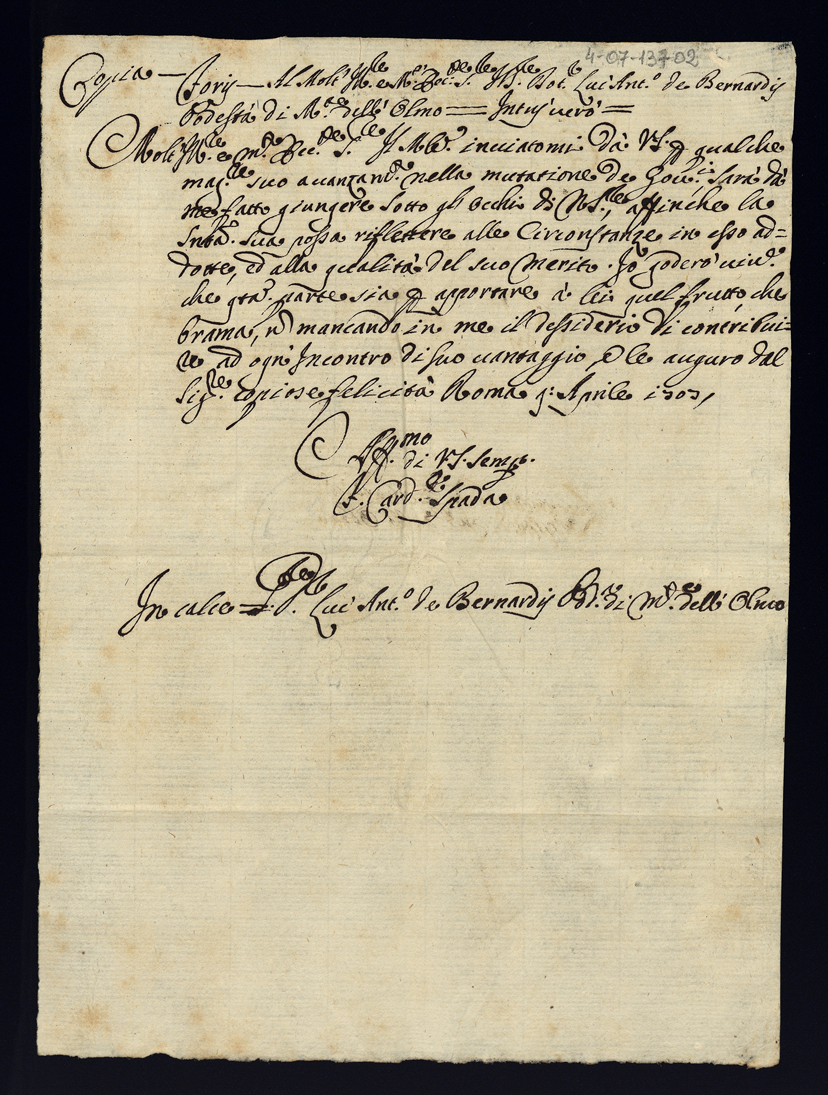 4-07-137-02
Copia — Foris — Al Molt' Ill.re e M.to Ecc.te S. Il S. Dott.r Luc' Ant.o de Bernardis
Podestà di M.te dell' Olmo == Intus verò ==
Molt' Ill.re e m.to Ecc.te S. Il Mle. inviatomi dà VS. p qualche
mag.re suo avanzam.to nella mutatione de Gov.ri: Sarà dà
me fatto giungere sotto gli occhi di N. S.re, affinche la
Sntà. sua possa riflettere alle Circonstanze in esso ad=
dotte, ed alla qualità del suo merito. Io goderò viv.te
che qta. parte sia p apportare à lei quel frutto che
brama, n mancando in me il dessiderio di contribui=
re ad ogn' Incontro di suo vantaggio, e le auguro dal
Sig.re copiose felicità Roma p: Aprile 1703,
Aff.mo di VS. Semp.
F. Card. Spada
In calce = S. Luc' Ant.o de Bernardis Pod.tà di M.te dell' Olmo